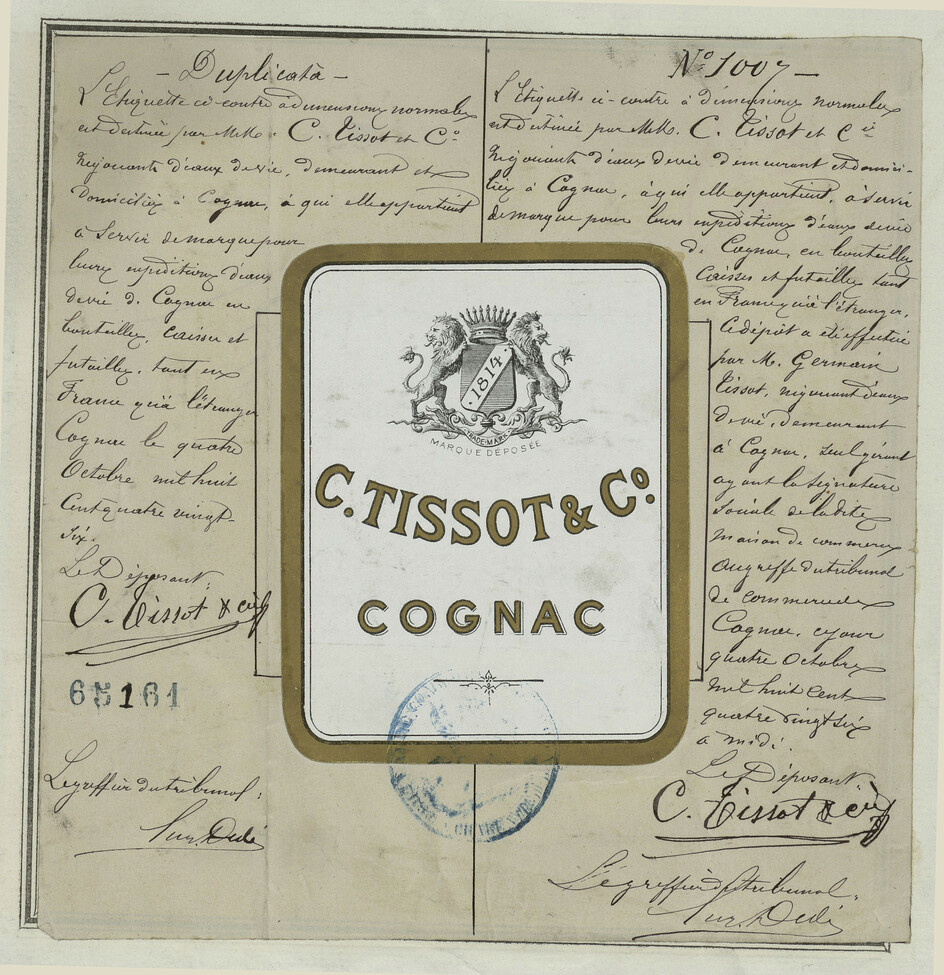 — Duplicata —
L'Etiquette ci-contre à dimensions normales
est destinée par MM. C. Tissot et Cie
Négociants d'eaux de vie, demeurant et
domiciliés à Cognac, à qui elle appartient
à servir de marque pour
leurs expéditions d'eaux
de vie de Cognac en
bouteilles, caisses et
futailles, tant en
France qu'à l'étranger
Cognac le quatre
Octobre mil huit
cent quatre vingt-
six.
Le Déposant,
C. Tissot & cie
65161
Le greffier du tribunal,
No 1007 —
L'Etiquette ci-contre à dimensions normales
est destinée par MM. C. Tissot et Cie
Négociants d'eaux de vie demeurant et domici-
liés à Cognac, à qui elle appartient, à servir
de marque pour leurs expéditions d'eaux de vie
de Cognac, en bouteilles
caisses et futailles tant
en France qu'à l'étranger.
Ce dépôt a été effectué
par M. Germain
Tissot, négociant d'eaux
de vie, demeurant
à Cognac, seul gérant
ayant la signature
sociale de la dite
maison de commerce
au greffe du tribunal
de commerce de
Cognac, ce jour
quatre Octobre
mil huit cent
quatre vingt six
à midi.
Le Déposant
C. Tissot & cie
Le greffier du tribunal,
1814
TRADE-MARK
MARQUE DÉPOSÉE
C. TISSOT & Co.
COGNAC